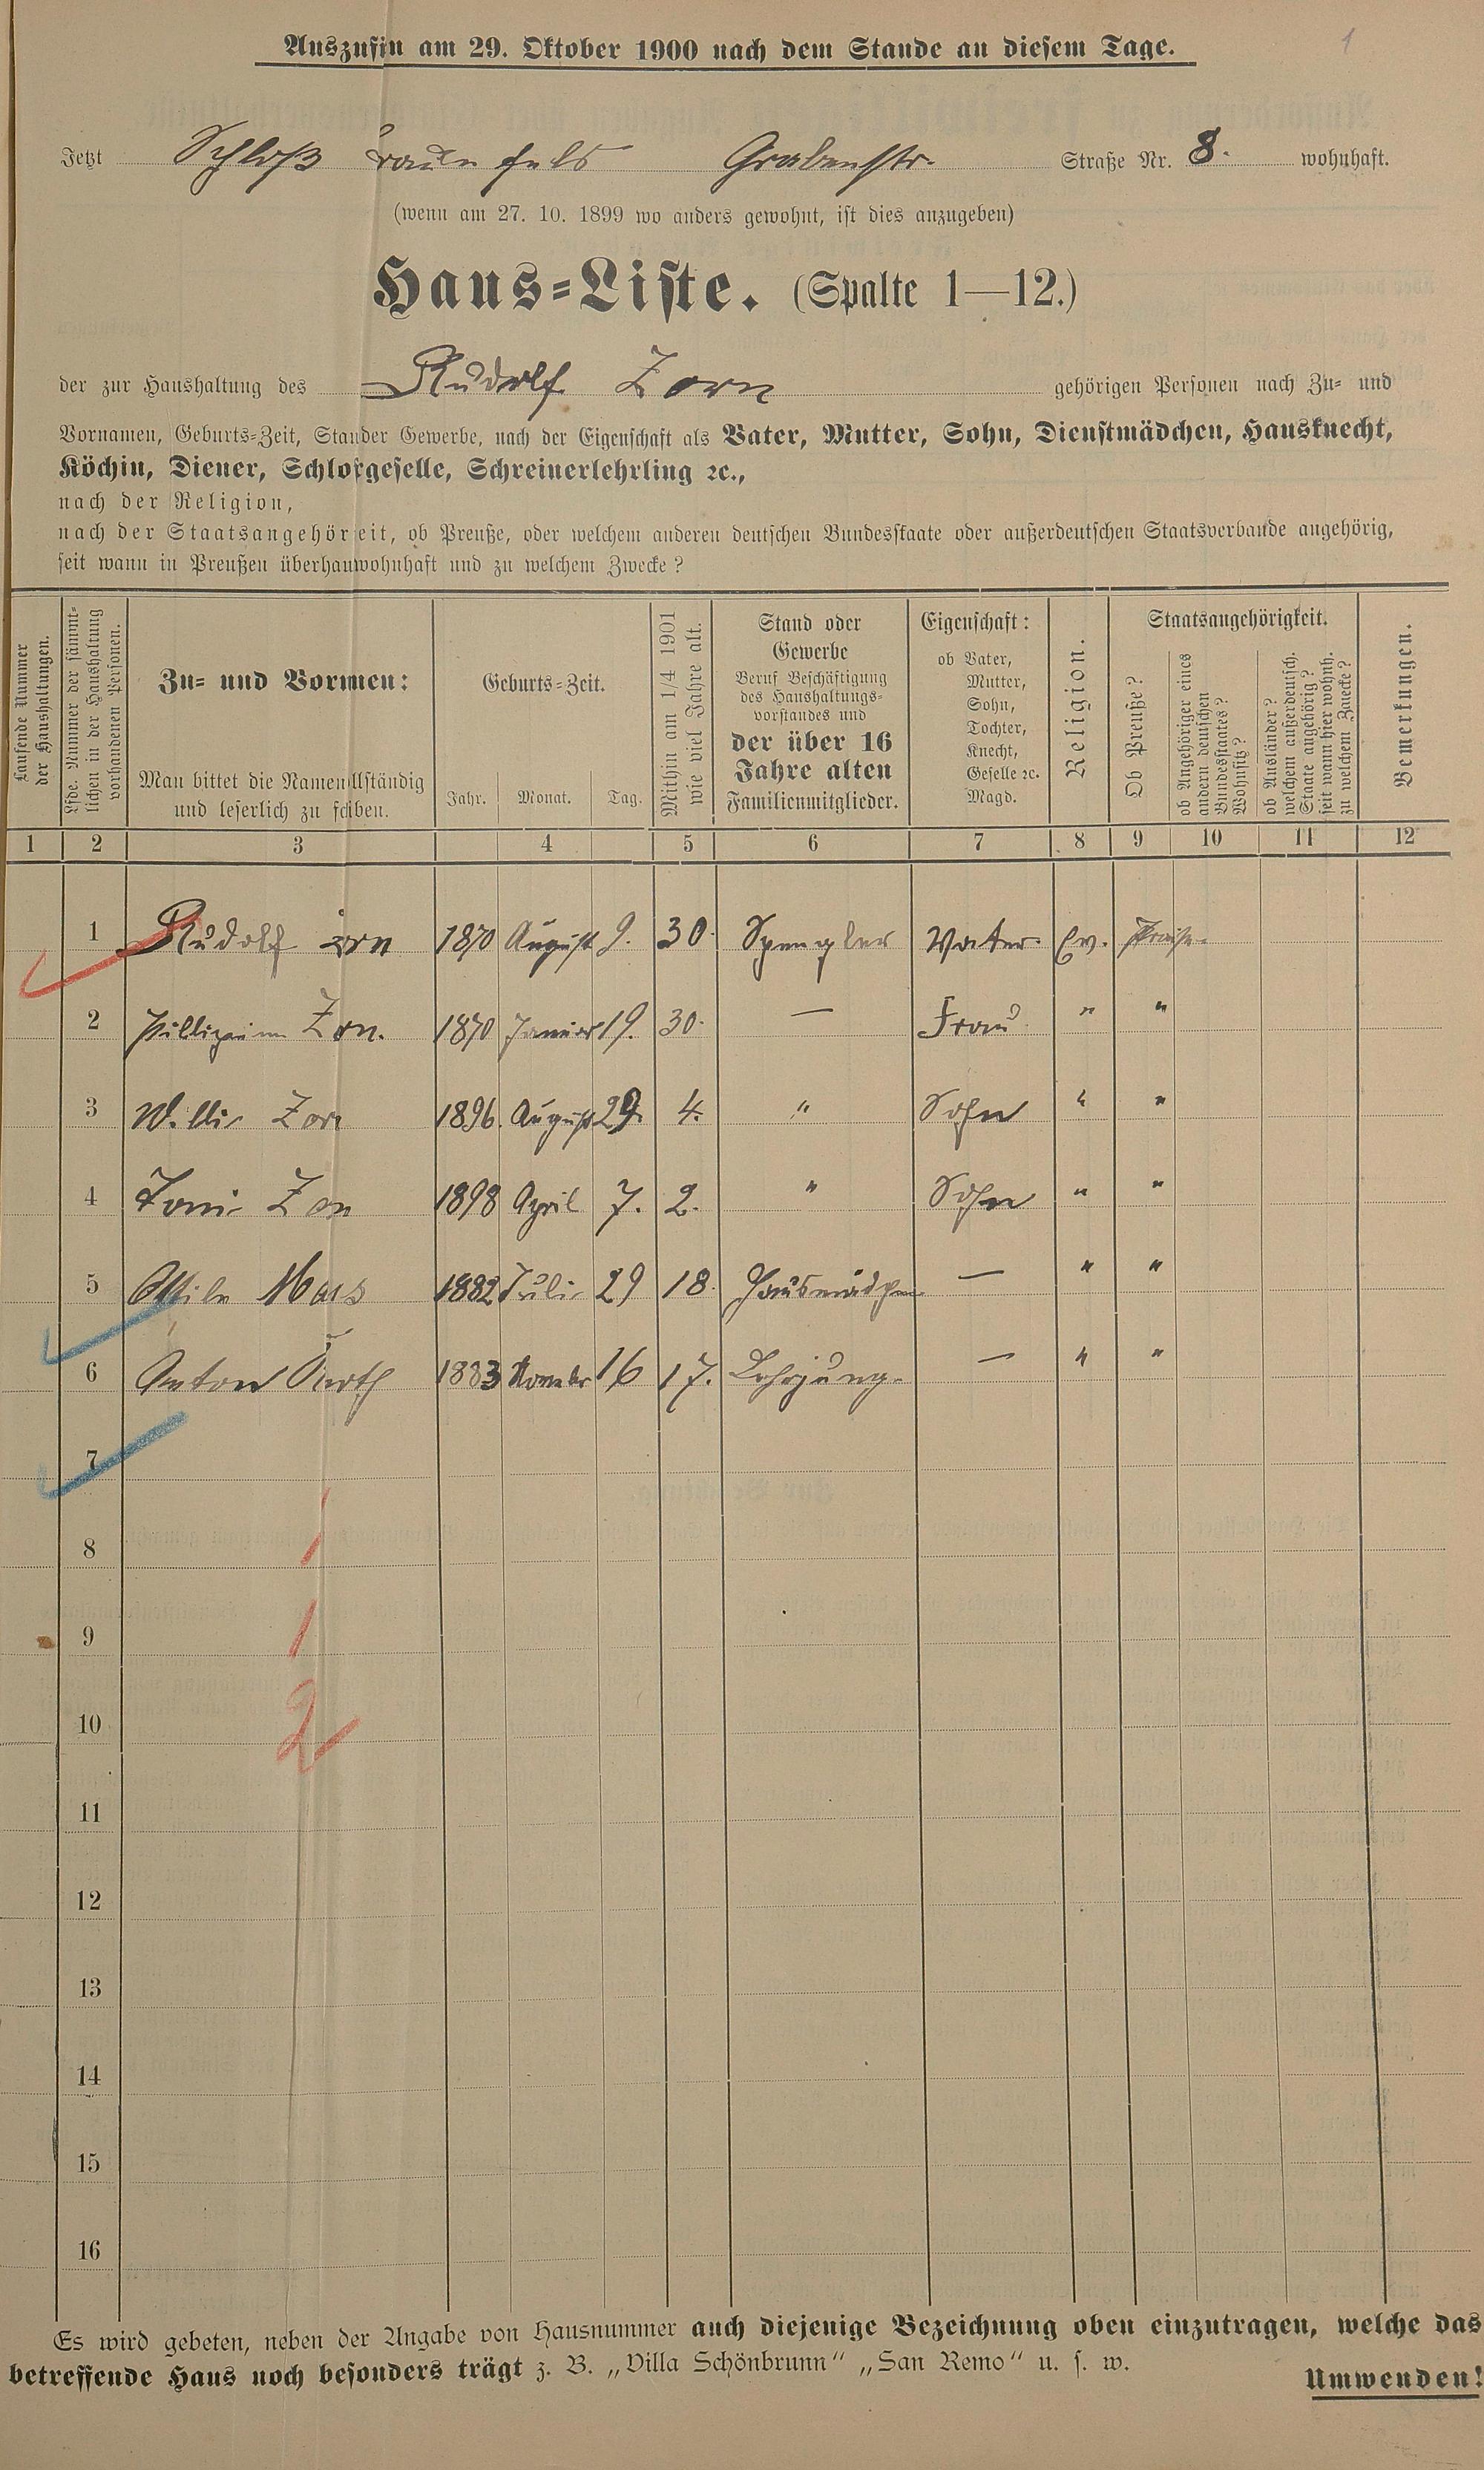 Auszufin am 29. Oktober 1900 nach dem Stande an diesem Tage.
1
Jetzt Schloß Grabenstr. Straße Nr. 8. wohnhaft.
(wenn am 27. 10. 1899 wo anders gewohnt, ist dies anzugeben)
Haus-Liste. (Spalte 1—12.)
der zur Haushaltung des Rudolf Zorn gehörigen Personen nach Zu- und
Vornamen, Geburts-Zeit, Stander Gewerbe, nach der Eigenschaft als Vater, Mutter, Sohn, Dienstmädchen, Hausknecht,
Köchin, Diener, Schlorgeselle, Schreinerlehrling ꝛc.,
nach der Religion,
nach der Staatsangehöreit, ob Preuße, oder welchem anderen deutschen Bundesstaate oder außerdeutschen Staatsverbande angehörig,
seit wann in Preußen überhauwohnhaft und zu welchem Zwecke?
Laufende Nummer
der Haushaltungen.
Lfde. Nummer der sämmt-
lichen in der Haushaltung
vorhandenen Personen.
Zu- und Vormen:
Man bittet die Namenllständig
und leserlich zu schiben.
Geburts-Zeit.
Jahr. Monat. Tag.
Mithin am 1/4 1901
wie viel Jahre alt.
Stand oder
Gewerbe
Beruf Beschäftigung
des Haushaltungs-
vorstandes und
der über 16
Jahre alten
Familienmitglieder.
Eigenschaft:
ob Vater,
Mutter,
Sohn,
Tochter,
Knecht,
Geselle ꝛc.
Magd.
Religion.
Staatsangehörigkeit.
Ob Preuße?
ob Angehöriger eines
andern deutschen
Bundesstaates?
Wohnsitz?
ob Ausländer?
welchem außerdeutsch.
Staate angehörig?
seit wann hier wohnh.
zu welchem Zwecke?
Bemerkungen.
1 2 3 4 5 6 7 8 9 10 11 12
1 Rudolf orn 1870 August 9. 30. Spengler Vater. Ev.
2 Zorn. 1870 Januar 19. 30. — Frau " "
3 Willi Zorn 1896. August 29. 4. " Sohn " "
4 Toni Zorn 1898 April 7. 2. " Sohn " "
5 1882 Juli 29 18. Hausmädchen — " "
6 Anton 1883 16 17. Lehrjung. — " "
7
8 1
9 1
10 2
11
12
13
14
15
16
Es wird gebeten, neben der Angabe von Hausnummer auch diejenige Bezeichnung oben einzutragen, welche das
betreffende Haus noch besonders trägt z. B. „Villa Schönbrunn“ „San Remo“ u. s. w.
Umwenden!